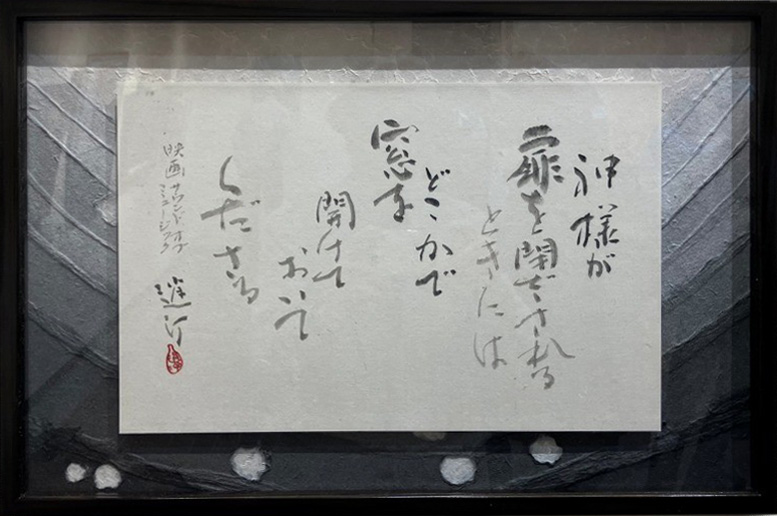 神様が
扉を閉ざされる
ときには
どこかで
窓を
開けて
おいて
くださる
映画 サウンド オブ
ミュージック